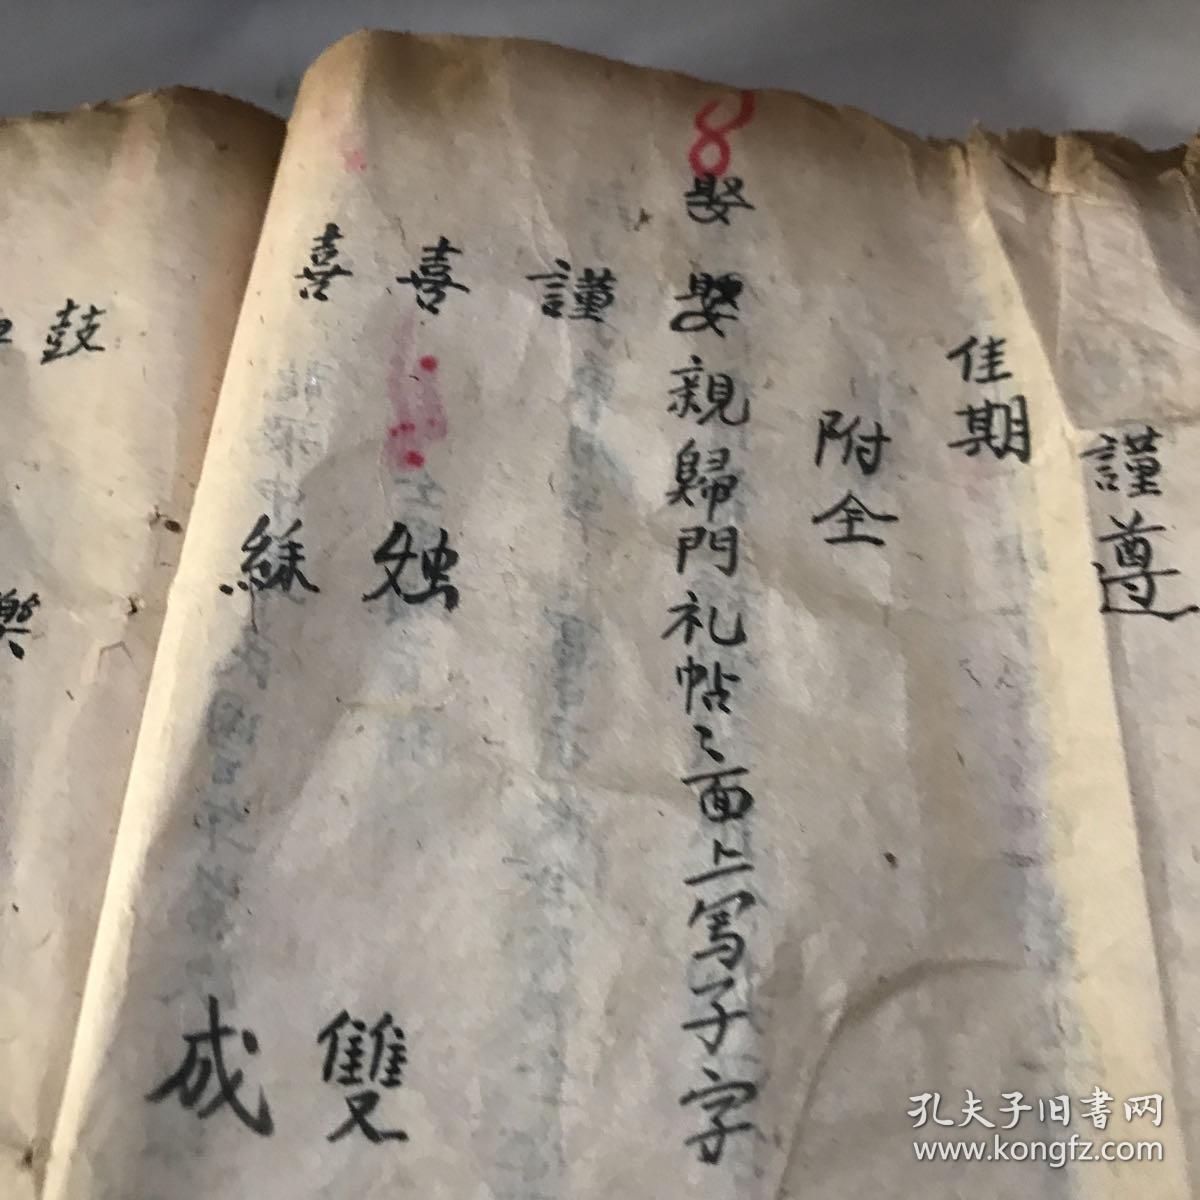 謹遵
佳期
附全
8
娶娶親歸門礼帖〻面上写子字
謹
喜燭雙
喜綵成
鼓
樂
孔夫子旧書网
www.kongfz.com